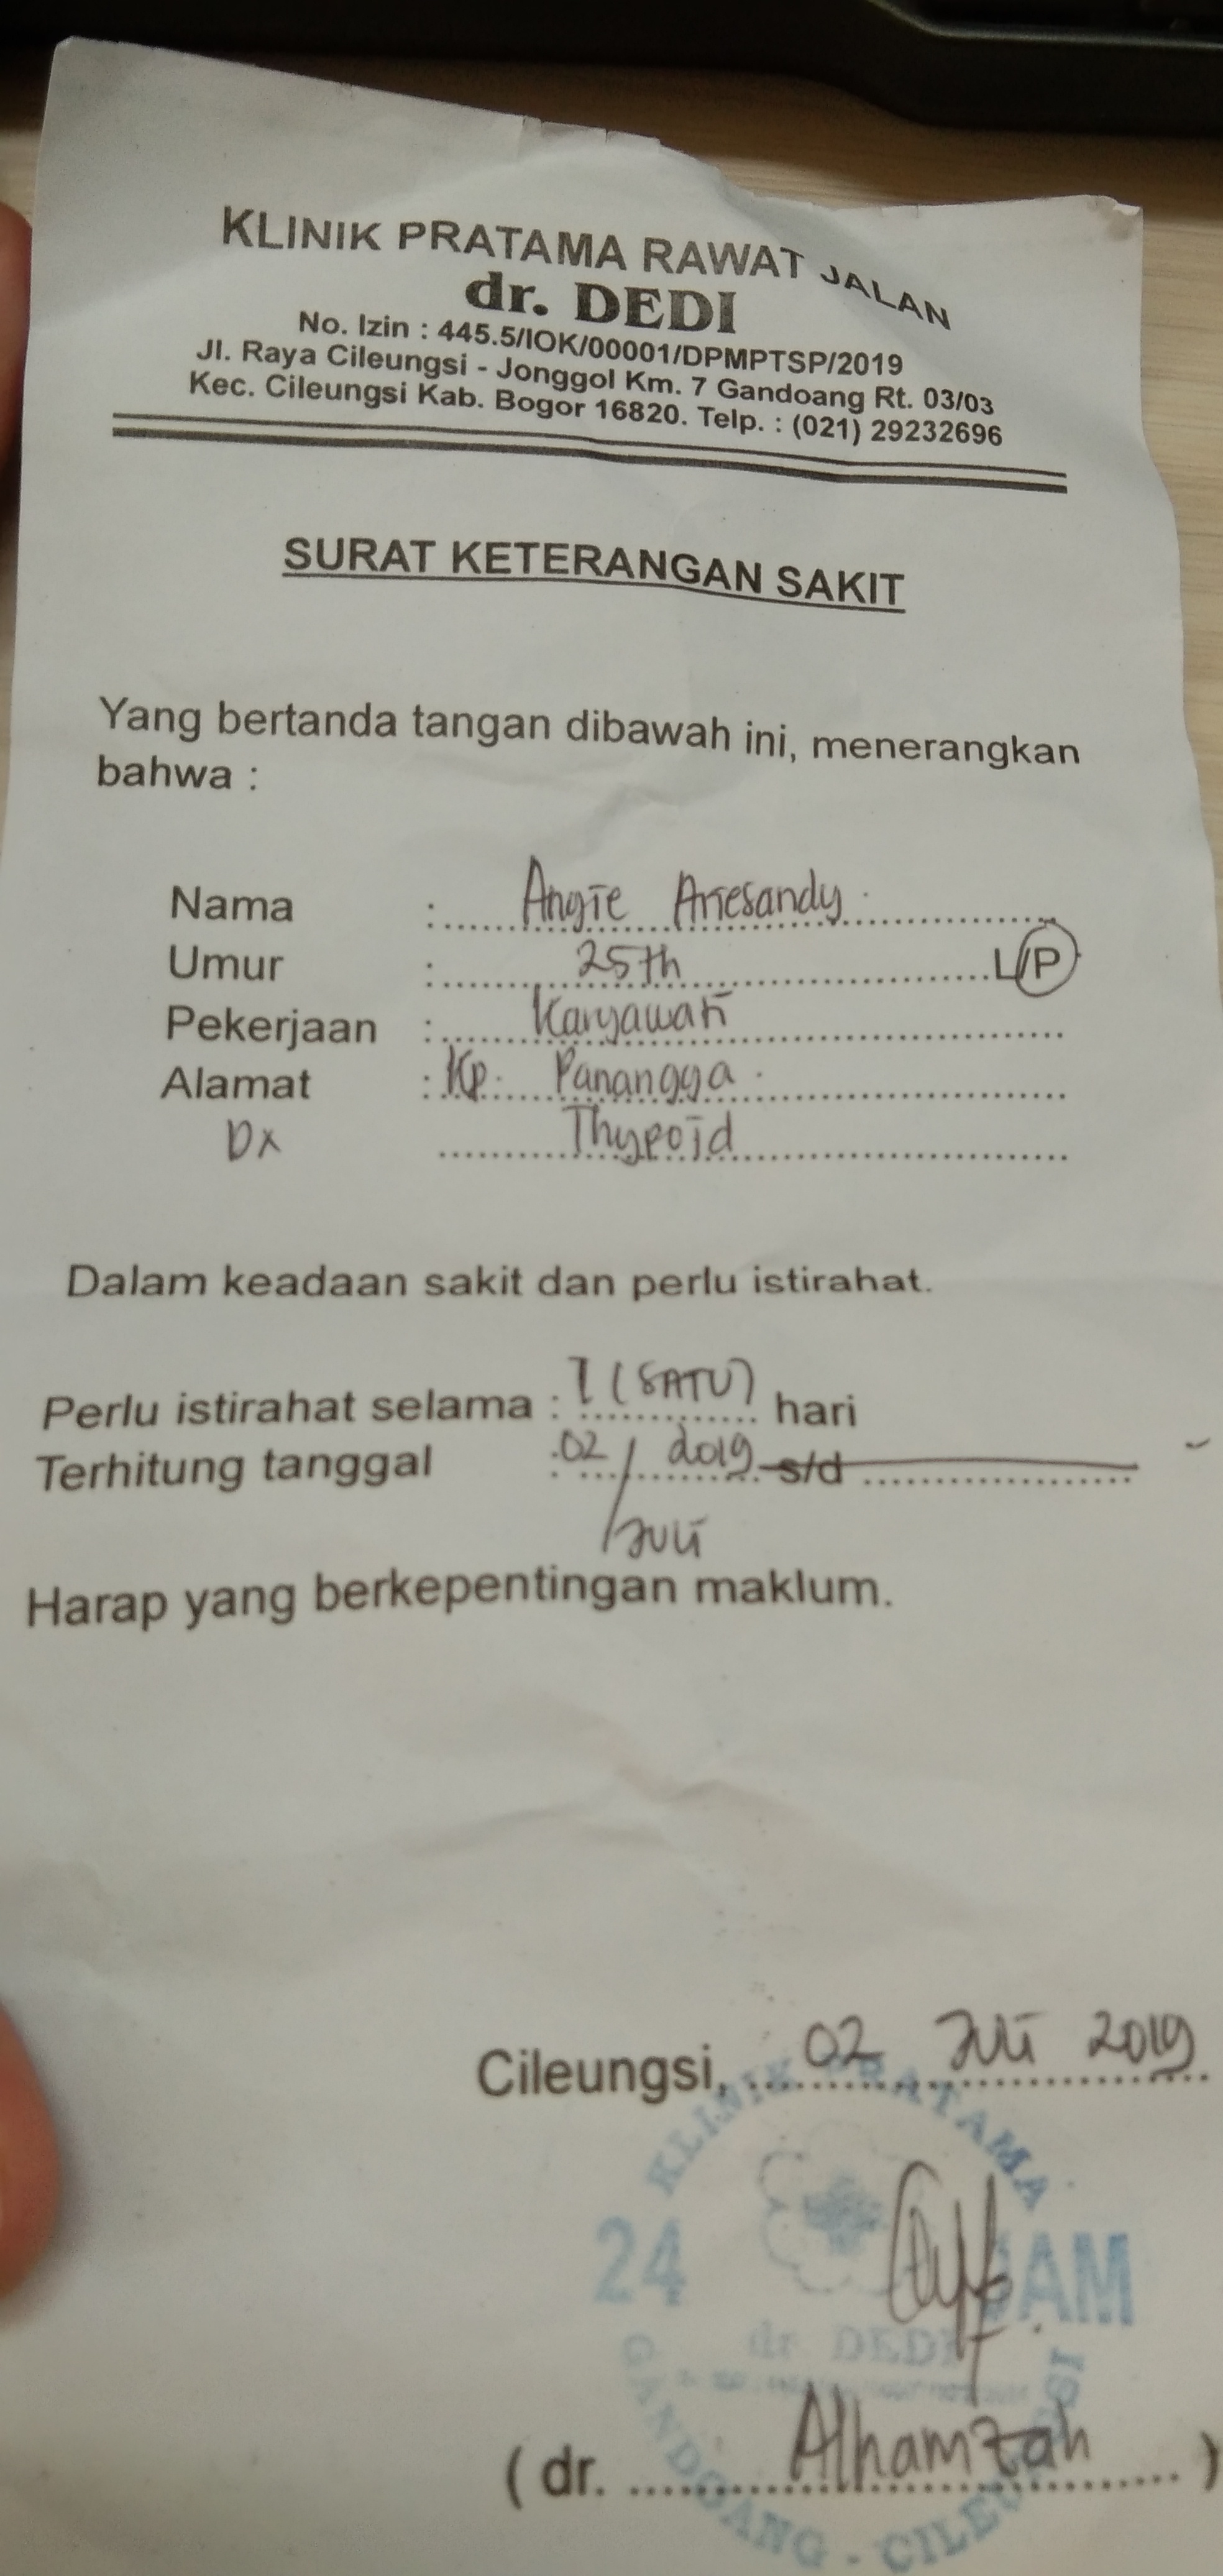 KLINIK PRATAMA RAWAT JALAN
dr. DEDI
No. Izin : 445.5/IOK/00001/DPMPTSP/2019
Jl. Raya Cileungsi - Jonggol Km. 7 Gandoang Rt. 03/03
Kec. Cileungsi Kab. Bogor 16820. Telp. : (021) 29232696
SURAT KETERANGAN SAKIT
Yang bertanda tangan dibawah ini, menerangkan
bahwa :
Nama : Angie Ariesandy
Umur : 25th L/P
Pekerjaan : Karyawati
Alamat : Kp. Panangga
Dx Thypoid
Dalam keadaan sakit dan perlu istirahat.
Perlu istirahat selama : 1 (SATU) hari
Terhitung tanggal : 02 / 2019 s/d
/ Juli
Harap yang berkepentingan maklum.
Cileungsi, 02 Juli 2019
KLINIK PRATAMA
24 JAM
dr. DEDI
GANDOANG - CILEUNGSI
( dr. Alhamzah )